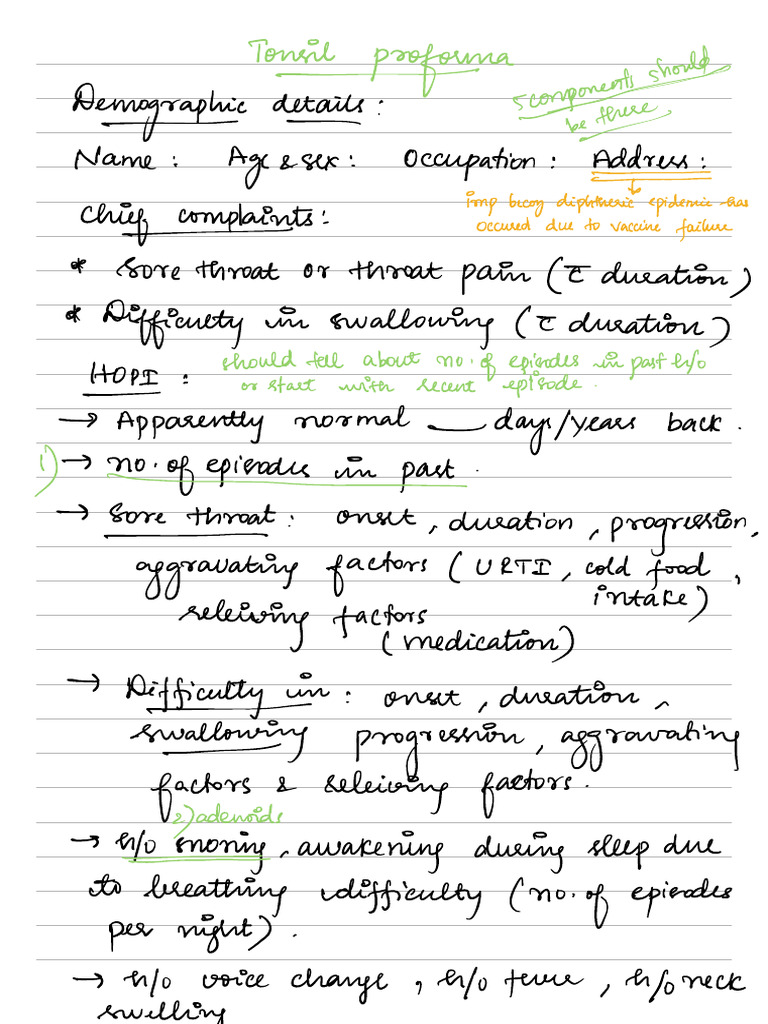 Tonsil proforma
5 components should
be there
Demographic details :
Name : Age & sex : Occupation : Address :
imp bcoz diphtheric epidemic has
occured due to vaccine failure
Chief complaints :
* Sore throat or throat pain (c̅ duration)
* Difficulty in swallowing (c̅ duration)
HOPI :
should tell about no. of episodes in past h/o
or start with recent episode.
→ Apparently normal ___ days/years back.
1) → no. of episodes in past.
→ Sore throat : onset, duration, progression,
aggravating factors (URTI, cold food
intake),
releiving factors
(medication)
→ Difficulty in : onset, duration,
swallowing progression, aggravating
factors & releiving factors.
2) adenoids
→ h/o snoring, awakening during sleep due
to breathing difficulty (no. of episodes
per night).
→ h/o voice change, h/o fever, h/o neck
swelling